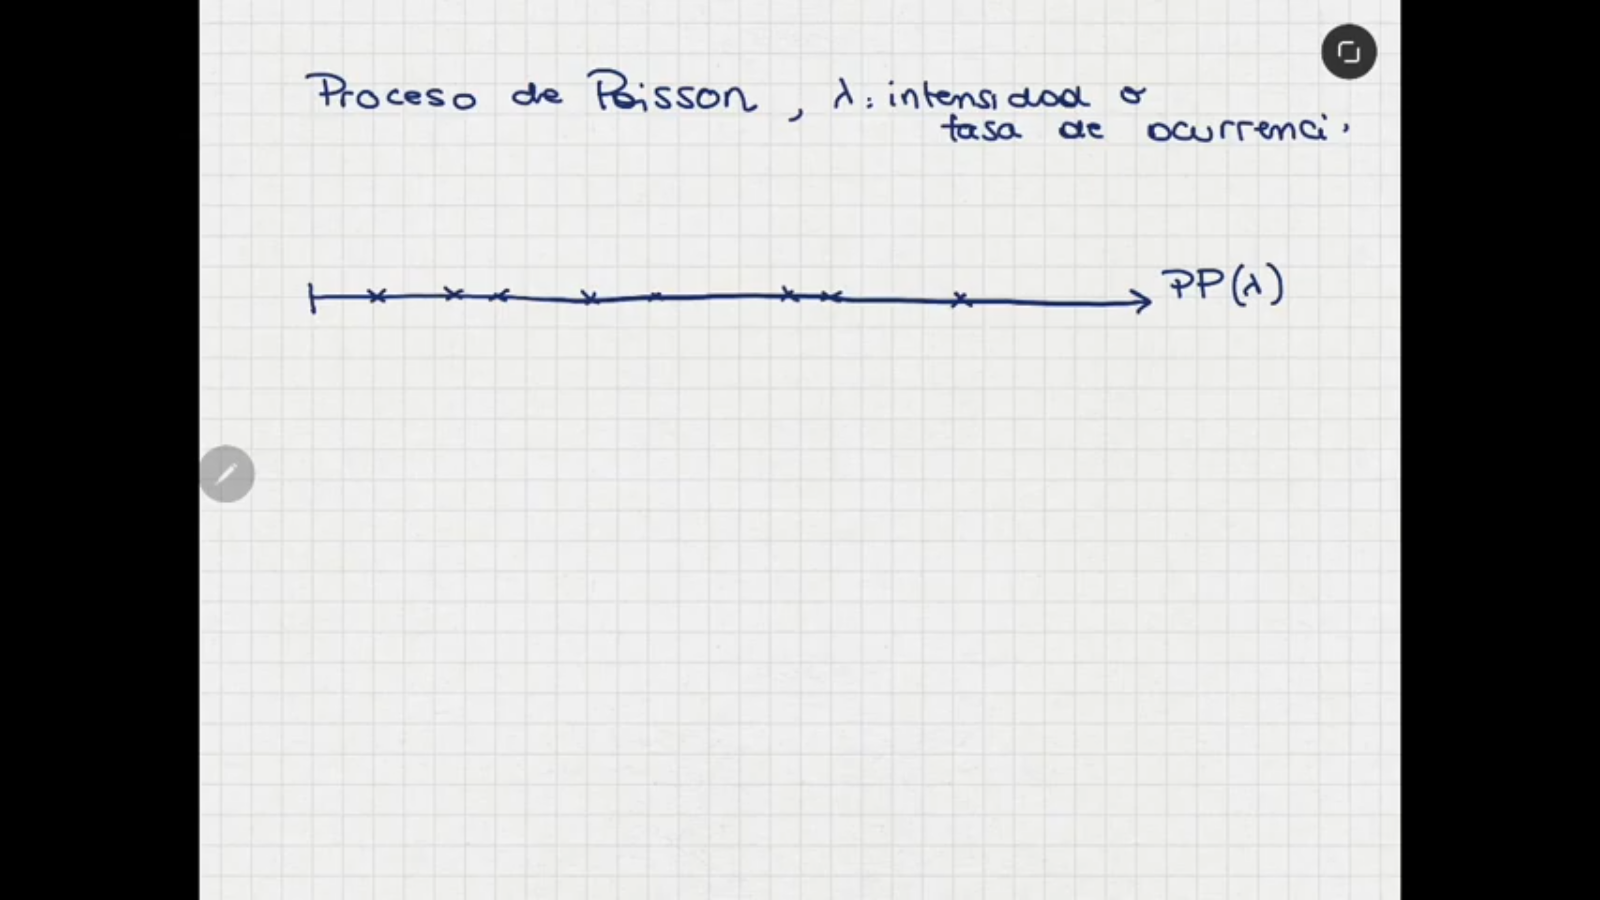 Proceso de Poisson, λ: intensidad o
tasa de ocurrenci
PP(λ)